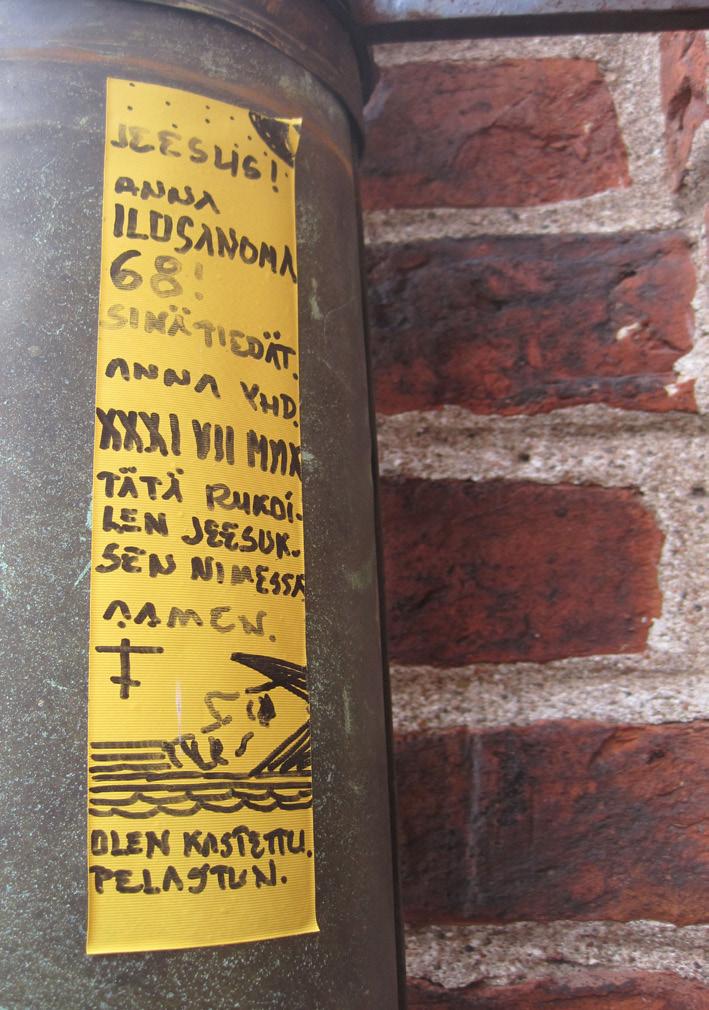 JEESUS!
ANNA
ILOSANOMA
68!
SINÄ TIEDÄT.
ANNA YHD.
XXXI VII MMX
TÄTÄ RUKOI-
LEN JEESUK-
SEN NIMESSÄ
AAMEN.
OLEN KASTETTU.
PELASTUN.